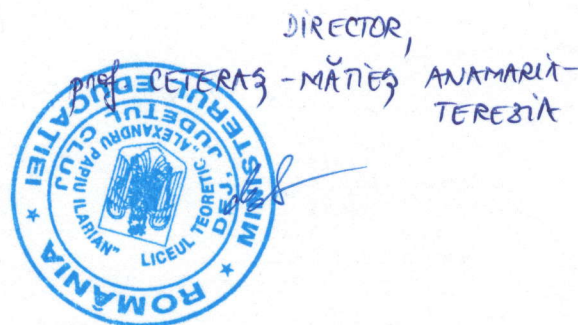 DIRECTOR,
prof CETERAȘ - MĂTIEȘ ANAMARIA-
TEREZIA
ROMÂNIA * MINISTERUL EDUCAȚIEI *
LICEUL TEORETIC „ALEXANDRU PAPIU ILARIAN"
DEJ, JUDEȚUL CLUJ